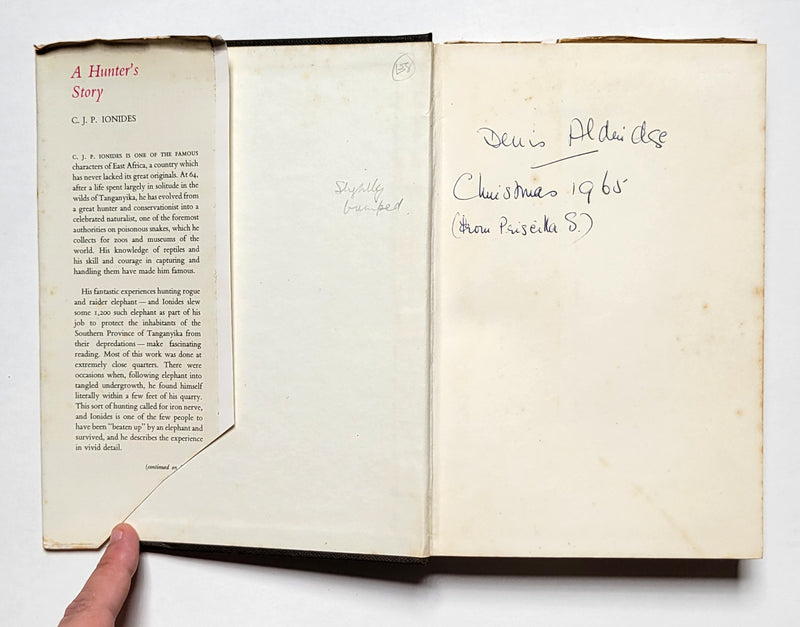 A Hunter's
Story
C. J. P. IONIDES
C. J. P. IONIDES IS ONE OF THE FAMOUS
characters of East Africa, a country which
has never lacked its great originals. At 64,
after a life spent largely in solitude in the
wilds of Tanganyika, he has evolved from
a great hunter and conservationist into a
celebrated naturalist, one of the foremost
authorities on poisonous snakes, which he
collects for zoos and museums of the
world. His knowledge of reptiles and
his skill and courage in capturing and
handling them have made him famous.
His fantastic experiences hunting rogue
and raider elephant — and Ionides slew
some 1,200 such elephant as part of his
job to protect the inhabitants of the
Southern Province of Tanganyika from
their depredations — make fascinating
reading. Most of this work was done at
extremely close quarters. There were
occasions when, following elephant into
tangled undergrowth, he found himself
literally within a few feet of his quarry.
This sort of hunting called for iron nerve,
and Ionides is one of the few people to
have been "beaten up" by an elephant and
survived, and he describes the experience
in vivid detail.
(continued on
138
Slightly
bumped.
Denis Aldridge
Christmas 1965
(from Priscilla S.)